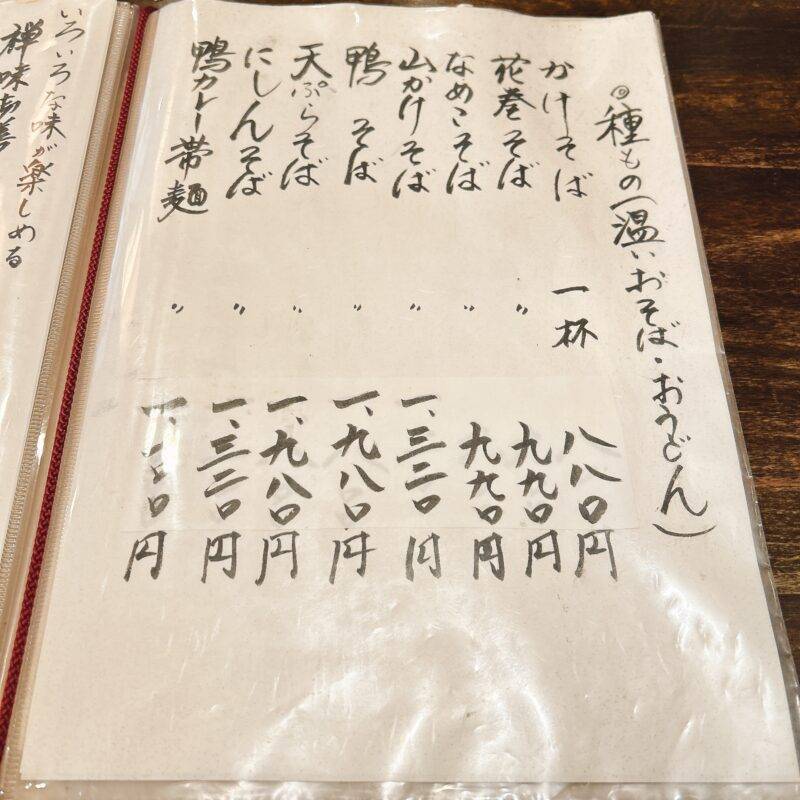 ◎種もの(温いおそば・おうどん)
かけそば 一杯 八八〇円
花巻そば 〃 九九〇円
なめこそば 〃 九九〇円
山かけそば 〃 一、三二〇円
鴨そば 〃 一、九八〇円
天ぷらそば 〃 一、九八〇円
にしんそば 〃 一、三二〇円
鴨カレー帯麺 〃 円
いろいろな味が楽しめる
禅味